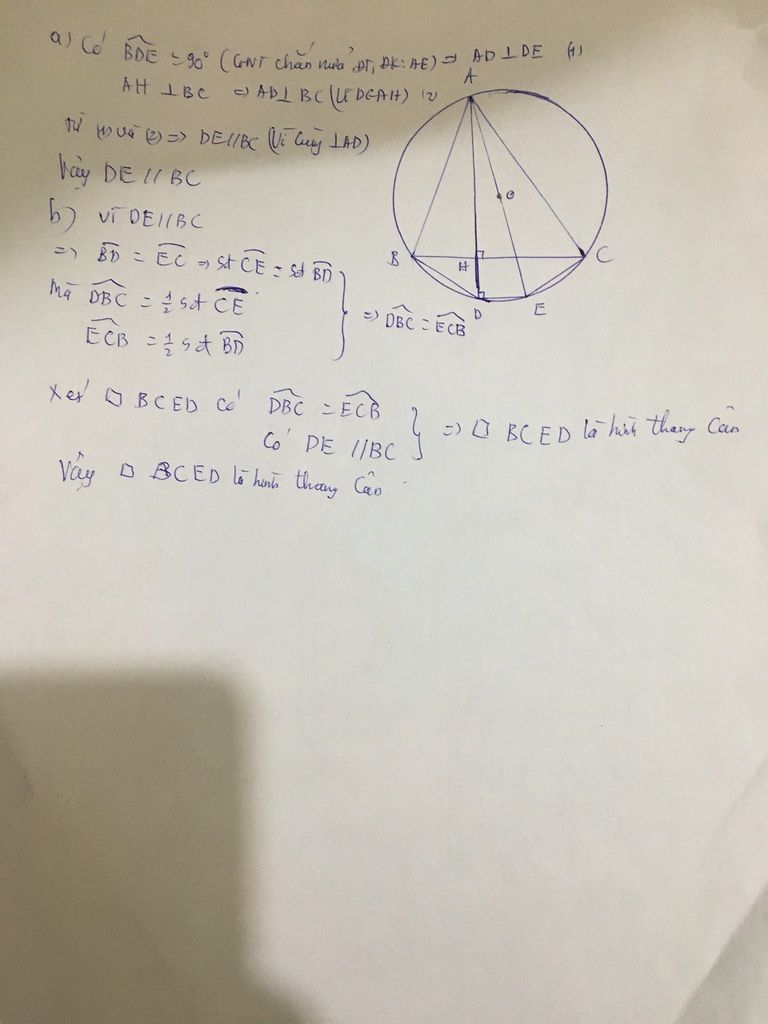 a) Có BDE = 90° (GNT chắn nửa ĐT, ĐK: AE) => AD ⊥ DE (1)
AH ⊥ BC => AD ⊥ BC (D∈AH) (2)
Từ (1) và (2) => DE // BC (Vì cùng ⊥ AD)
Vậy DE // BC
b) Vì DE // BC
=> BD = EC => sđ CE = sđ BD
Mà DBC = 1/2 sđ CE
ECB = 1/2 sđ BD
=> DBC = ECB
Xét □ BCED có DBC = ECB
Có DE // BC
=> □ BCED là hình thang cân
Vậy □ BCED là hình thang cân
A
O
B
H
C
D
E